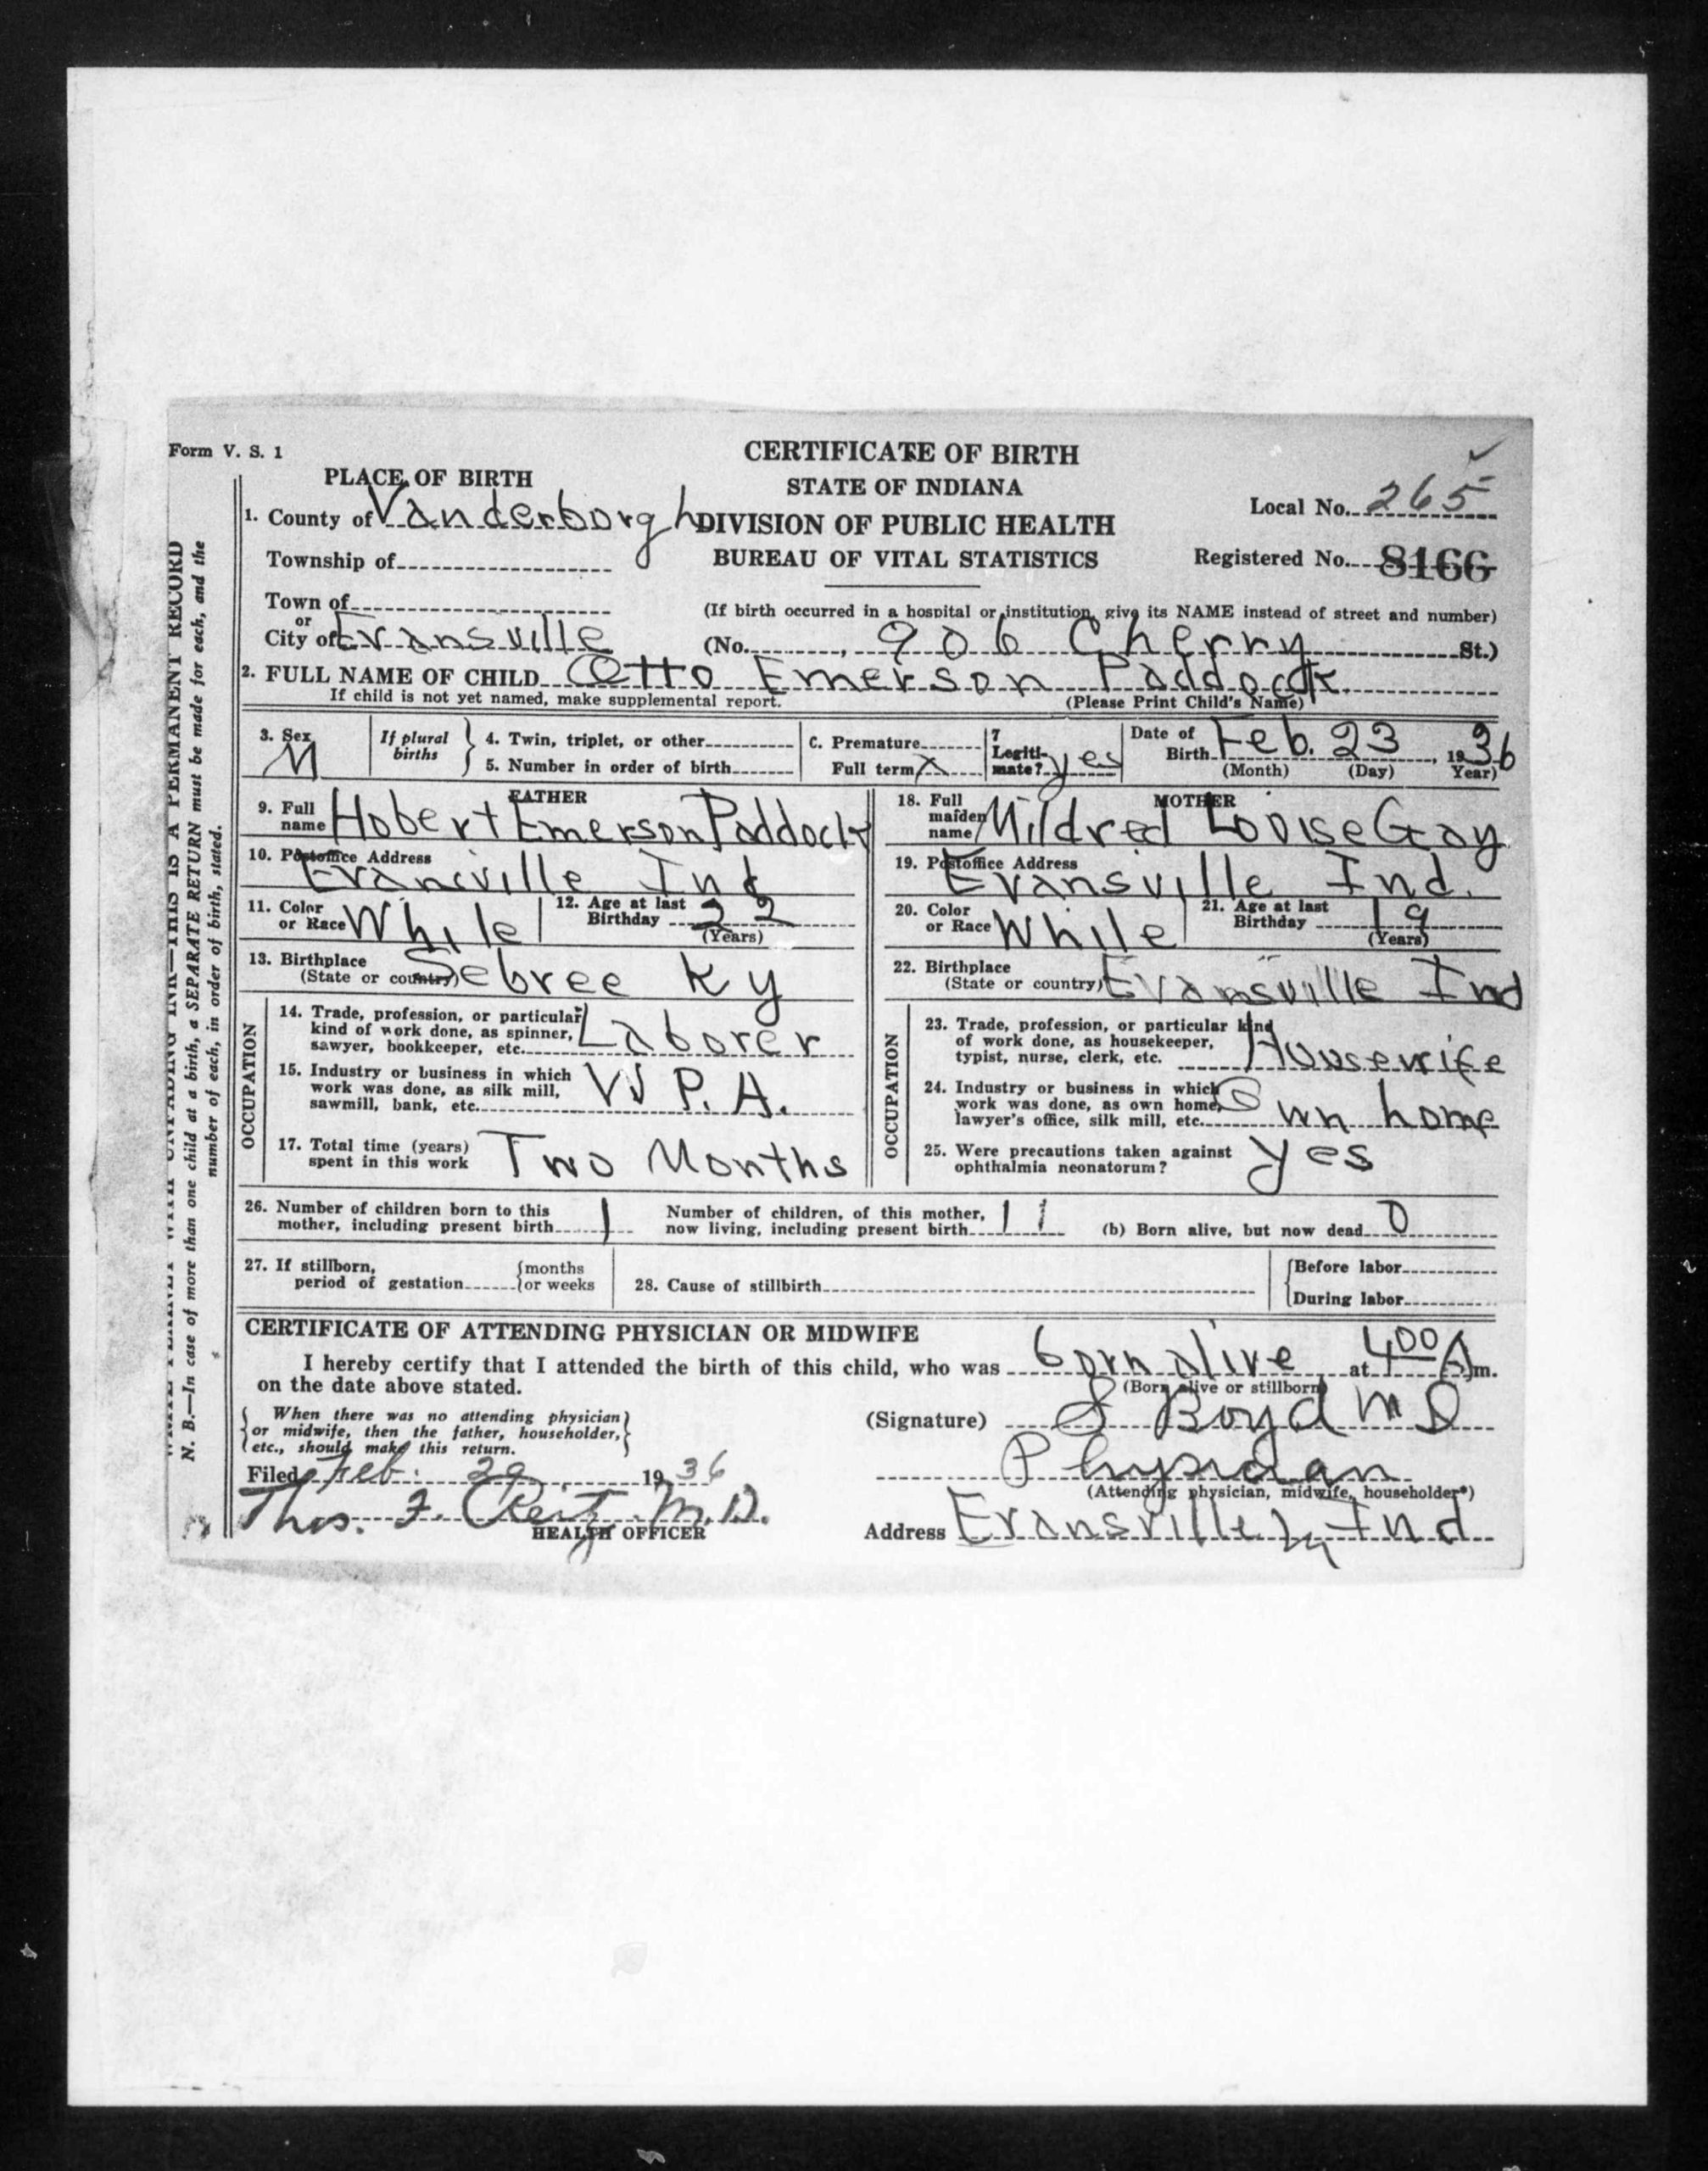 Form V. S. 1
CERTIFICATE OF BIRTH
PLACE OF BIRTH
STATE OF INDIANA
Local No. 265
1. County of Vanderborgh
DIVISION OF PUBLIC HEALTH
Township of
BUREAU OF VITAL STATISTICS
Registered No. 8166
Town of
or
(If birth occurred in a hospital or institution, give its NAME instead of street and number)
City of Evansville (No. , 906 Cherry St.)
2. FULL NAME OF CHILD Otto Emerson Paddock
If child is not yet named, make supplemental report. (Please Print Child's Name)
3. Sex M
If plural births
4. Twin, triplet, or other
5. Number in order of birth
C. Premature
Full term X
7 Legiti-
mate? yes
Date of
Birth Feb. 23, 1936
(Month) (Day) Year)
FATHER
9. Full
name Hobert Emerson Paddock
10. Postoffice Address
Evansville Ind
11. Color
or Race White
12. Age at last
Birthday 22
(Years)
13. Birthplace
(State or country) Sebree Ky
OCCUPATION
14. Trade, profession, or particular
kind of work done, as spinner,
sawyer, bookkeeper, etc. Laborer
15. Industry or business in which
work was done, as silk mill,
sawmill, bank, etc. W P. A.
17. Total time (years)
spent in this work Two Months
MOTHER
18. Full
maiden
name Mildred Louise Gay
19. Postoffice Address
Evansville Ind.
20. Color
or Race White
21. Age at last
Birthday 19
(Years)
22. Birthplace
(State or country) Evansville Ind
OCCUPATION
23. Trade, profession, or particular kind
of work done, as housekeeper,
typist, nurse, clerk, etc. Housewife
24. Industry or business in which
work was done, as own home,
lawyer's office, silk mill, etc. Own home
25. Were precautions taken against
ophthalmia neonatorum? Yes
26. Number of children born to this
mother, including present birth 1
Number of children, of this mother,
now living, including present birth 1 1
(b) Born alive, but now dead 0
27. If stillborn,
period of gestation {months
{or weeks
28. Cause of stillbirth
{Before labor
{During labor
CERTIFICATE OF ATTENDING PHYSICIAN OR MIDWIFE
I hereby certify that I attended the birth of this child, who was born alive at 4 00 A m.
on the date above stated. (Born alive or stillborn)
{ When there was no attending physician }
{ or midwife, then the father, householder, }
{ etc., should make this return. }
(Signature) S Boyd M D
Filed Feb. 29 1936
Physician
(Attending physician, midwife, householder*)
Thos. F. Reitz M.D.
HEALTH OFFICER
Address Evansville, Ind
THIS IS A PERMANENT RECORD
N. B.—In case of more than one child at a birth, a SEPARATE RETURN must be made for each, and the
number of each, in order of birth, stated.